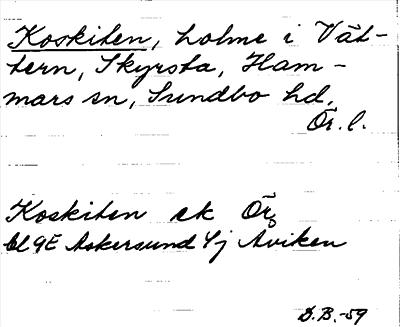 Koskiten, holme i Vät-
tern, Skyrsta, Ham-
mars sn, Sundbo hd,
Ör. l.
Koskiten ek Ör
bl 9E Askersund 4j Aviken
D.B.-59